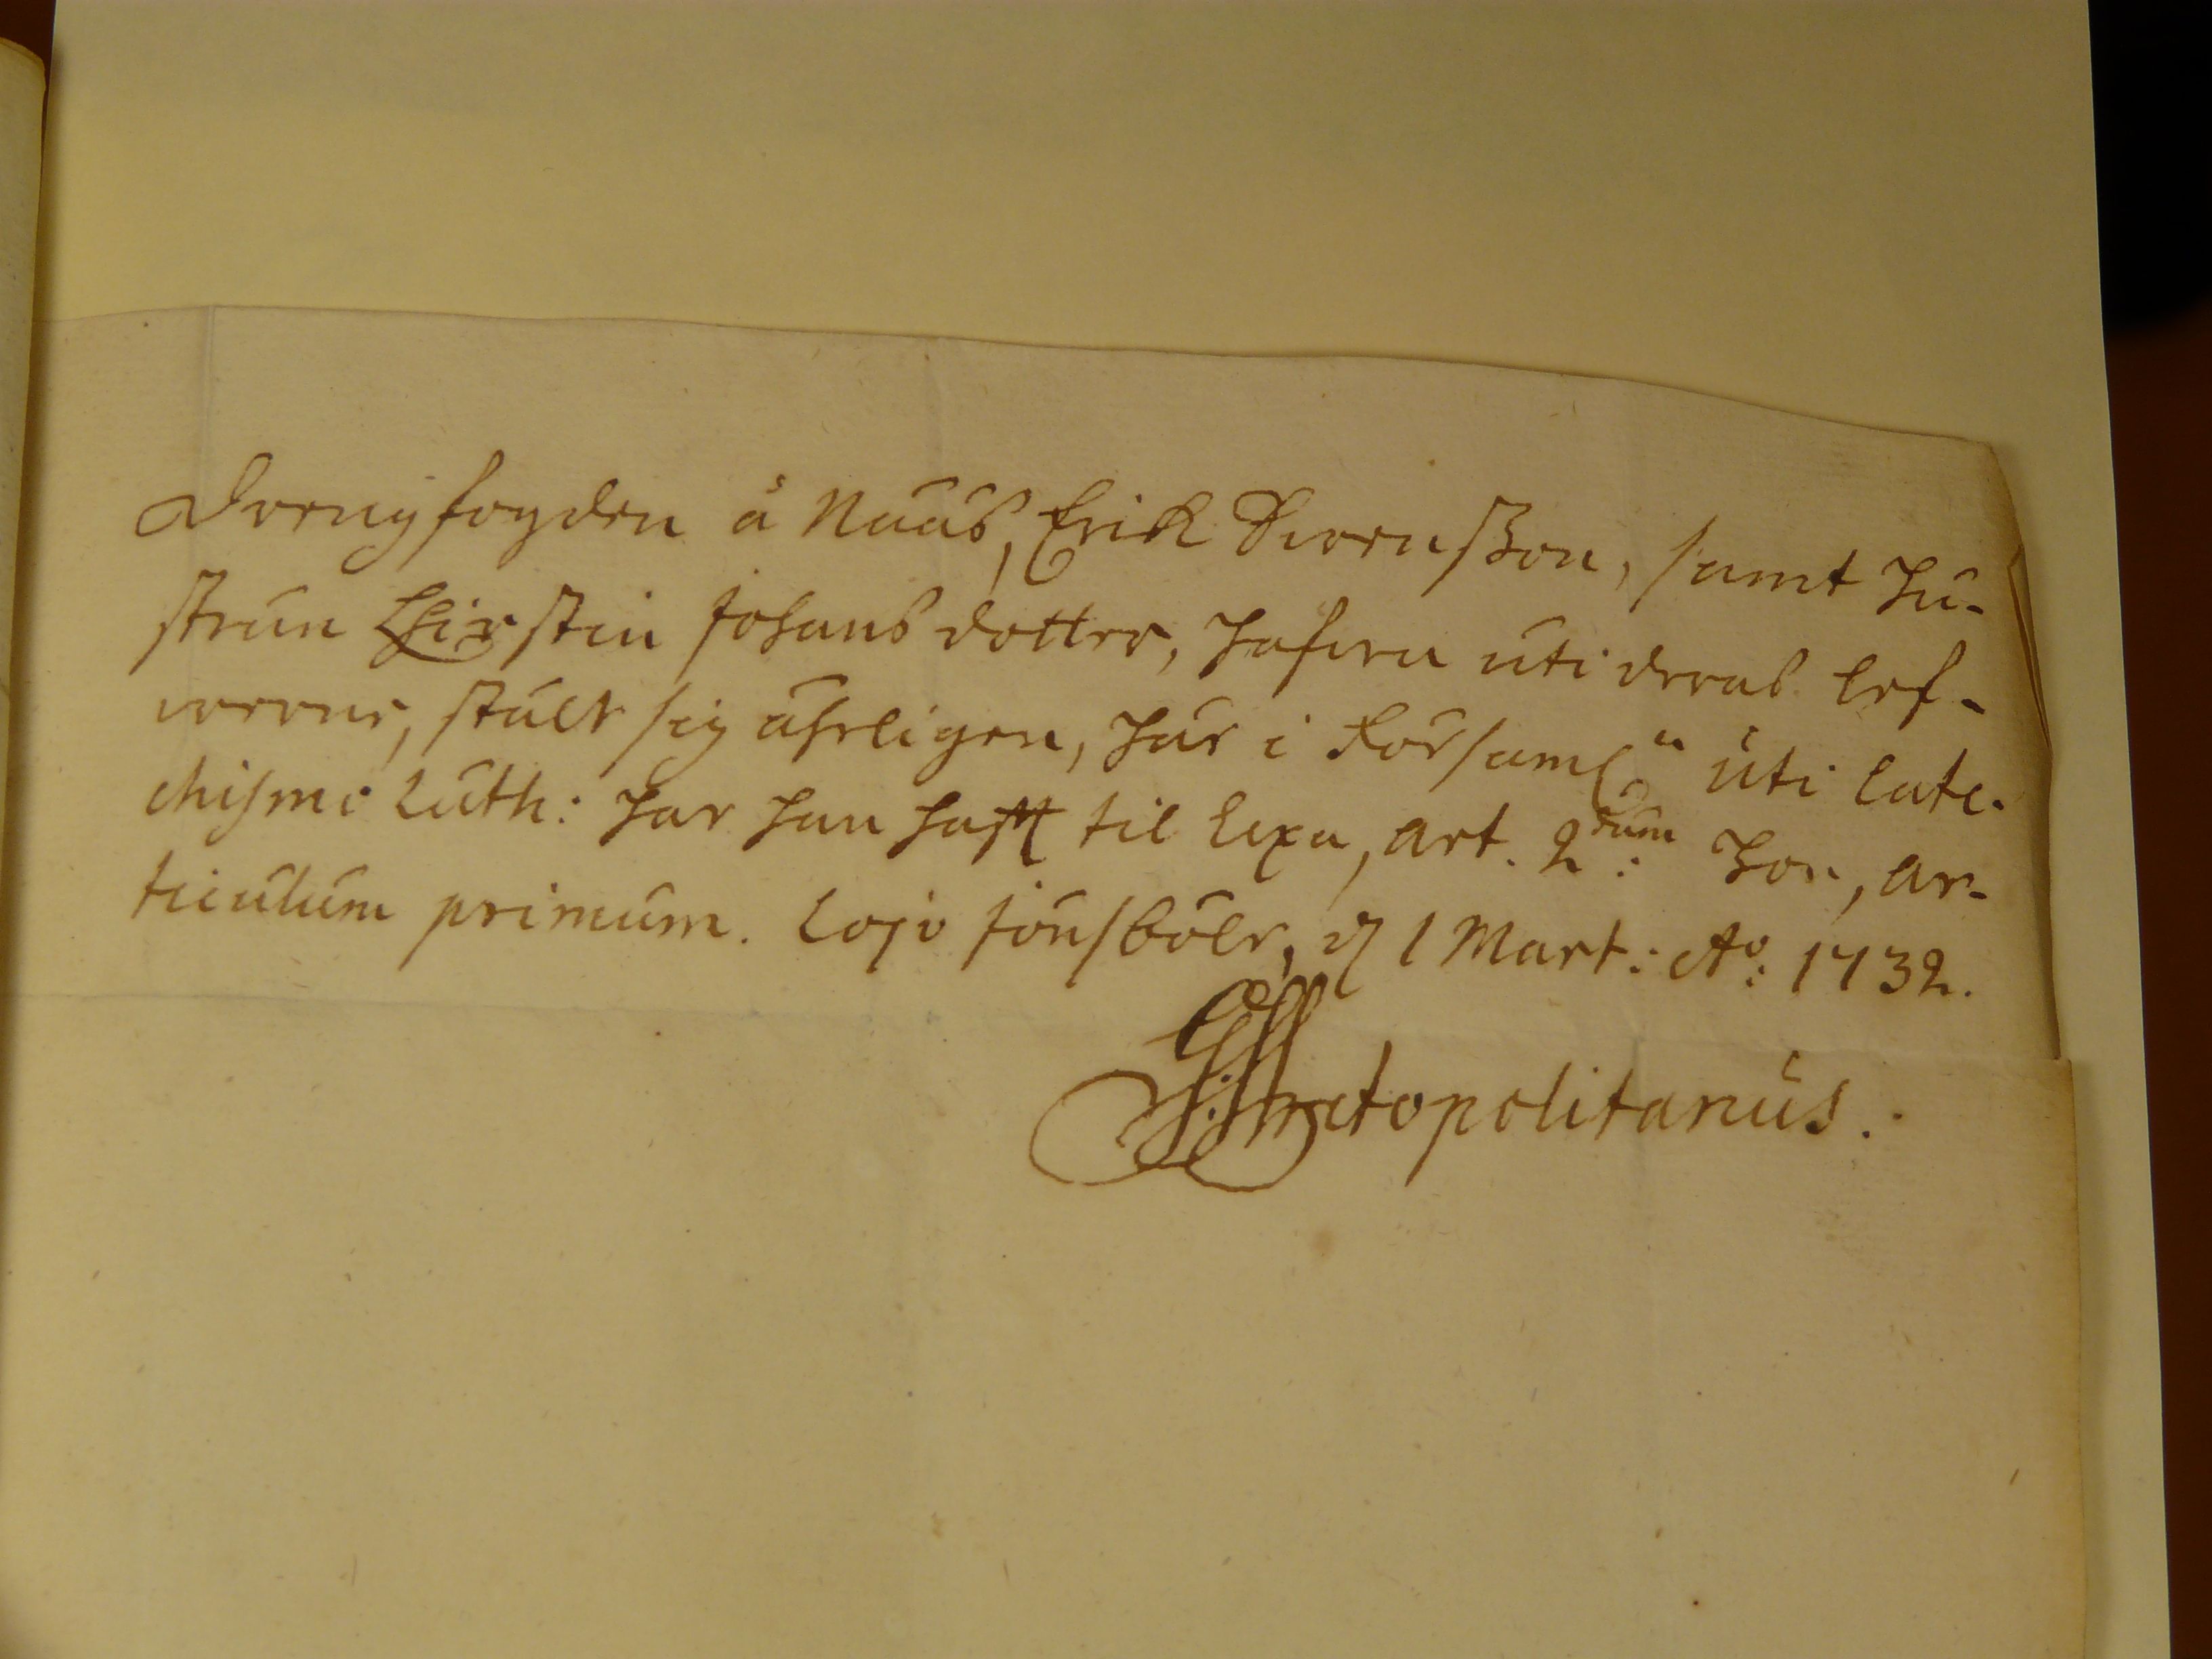 Drengfogden å Nääs, Erick Swensson, samt Hu-
strun Chirstin Johansdotter, hafwa uti deras lef-
werne, stält sig ährligen, här i Församl:n uti Cate-
chismo Luth: har han haft til lexa, art. 2dum: Hon, ar-
ticulum primum. Lojo Jönsböle, d 1 Mart: Ao: 1732.
topolitanus.